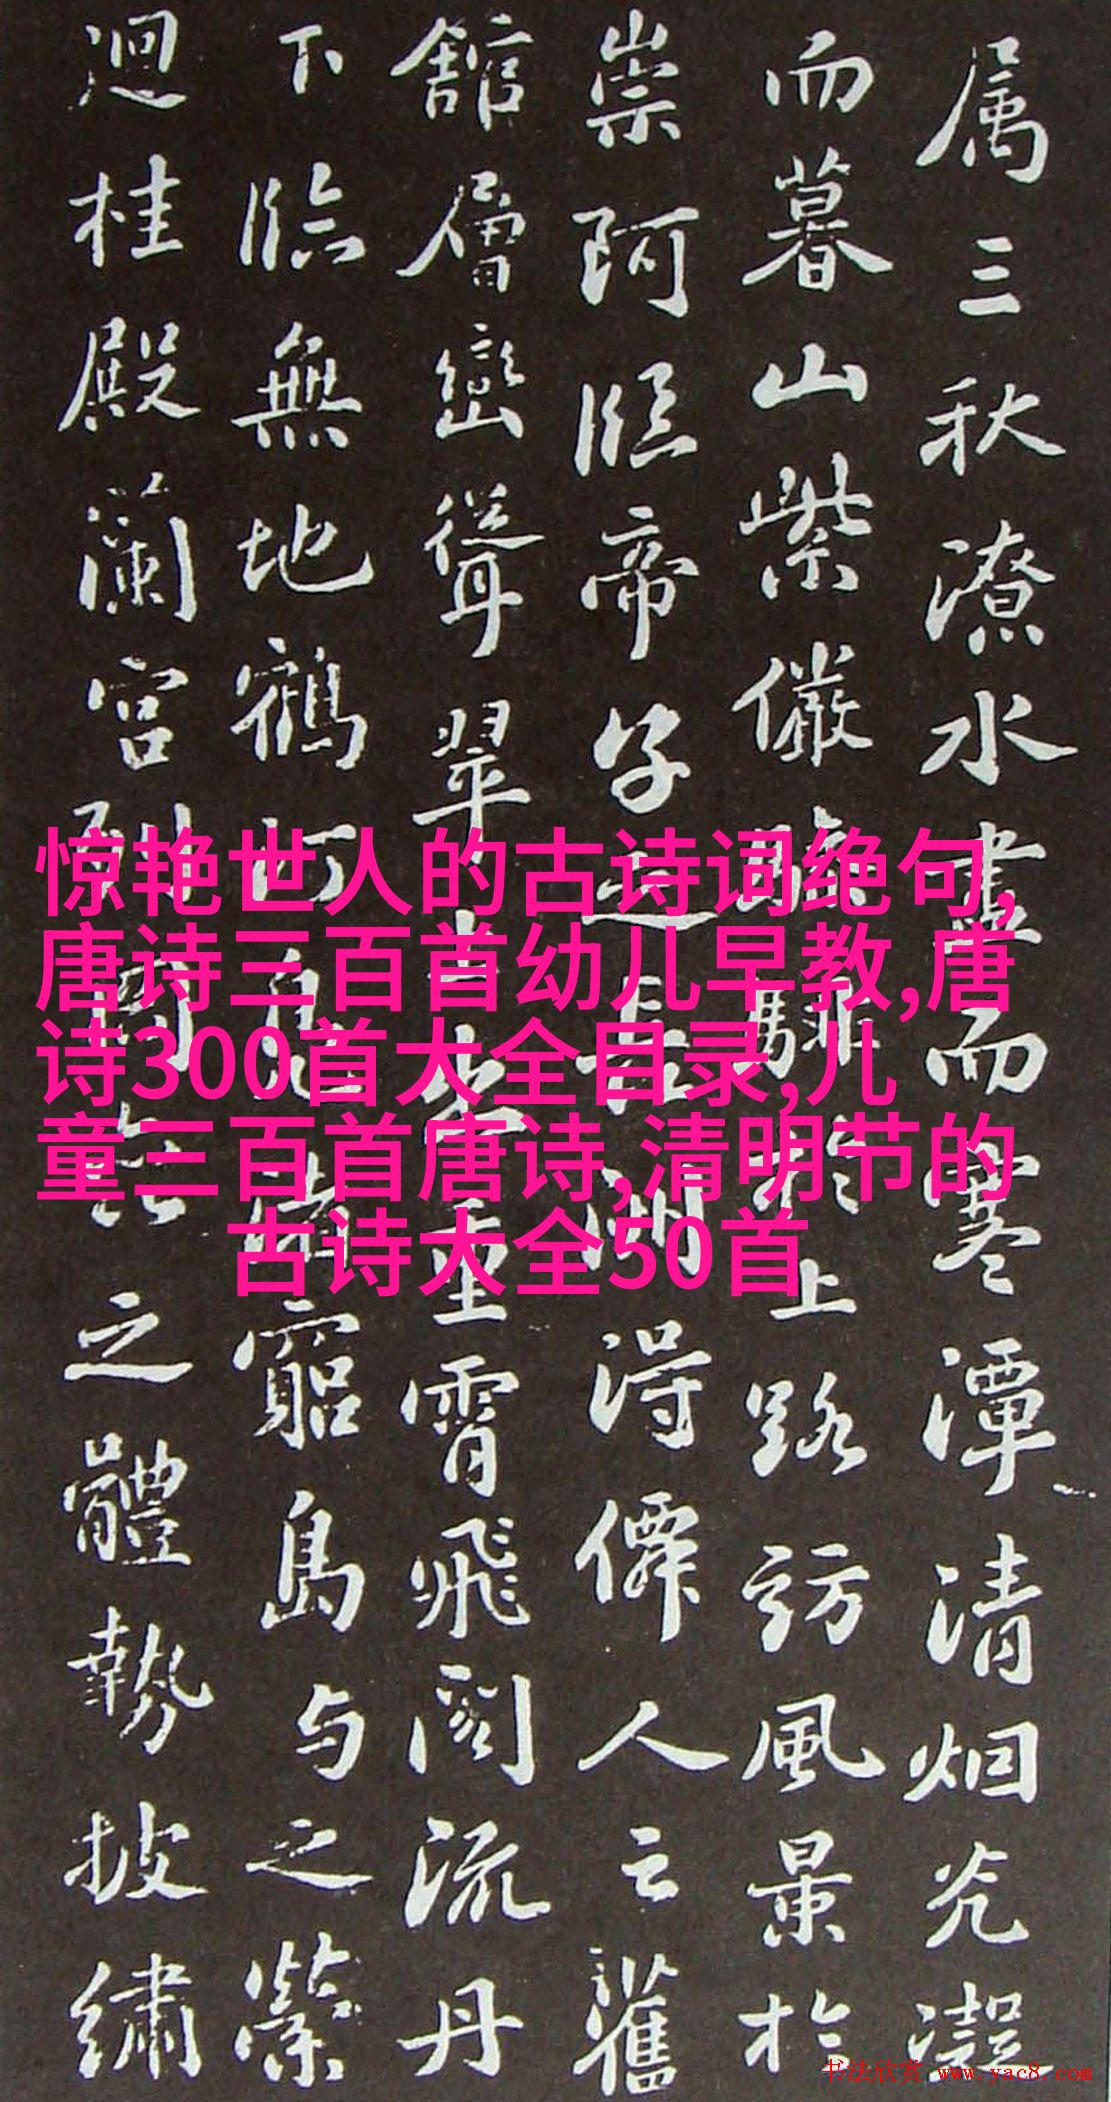 属三秋潦水盡而寒潭清烟光凝
而暮山紫儼驂騑於上路訪風景於
崇阿臨帝子之長洲得僊人之舊
館層巒聳翠上出重霄飛閣流丹
下臨無地鶴汀鳧渚窮島与之縈
迴桂殿蘭宮岡之體勢披繡
惊艳世人的古诗词绝句,
唐诗三百首幼儿早教,唐
诗300首大全目录,儿
童三百首唐诗,清明节的
古诗大全50首
书法欣赏 www.yac8.com